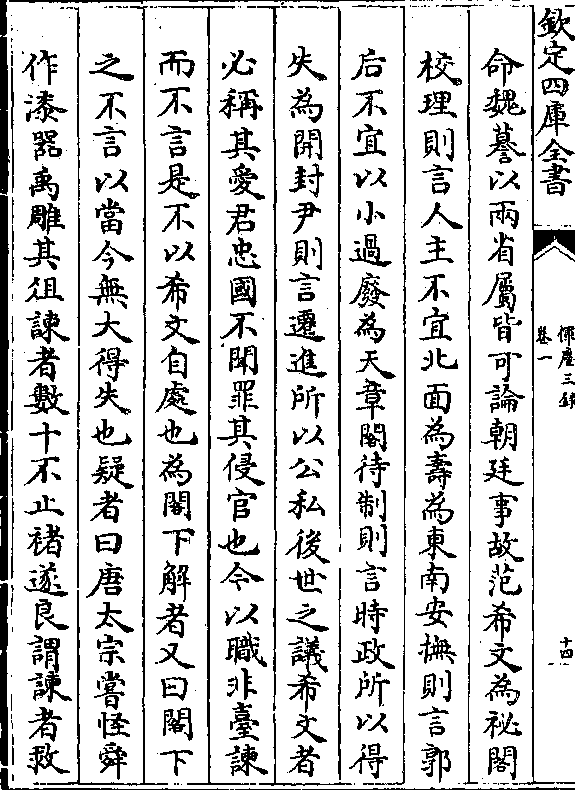 欽定四庫全書
揮麈三錄
卷一
十四
命魏謩以兩省屬皆可論朝廷事故范希文為祕閣
校理則言人主不宜北面為壽為東南安撫則言郭
后不宜以小過廢為天章閣待制則言時政所以得
失為開封尹則言遷進所以公私後世之議希文者
必稱其愛君忠國不聞罪其侵官也今以職非臺諫
而不言是不以希文自處也為閣下解者又曰閣下
之不言以當今無大得失也疑者曰唐太宗嘗怪舜
作漆器禹雕其俎諫者數十不止褚遂良謂諫者救